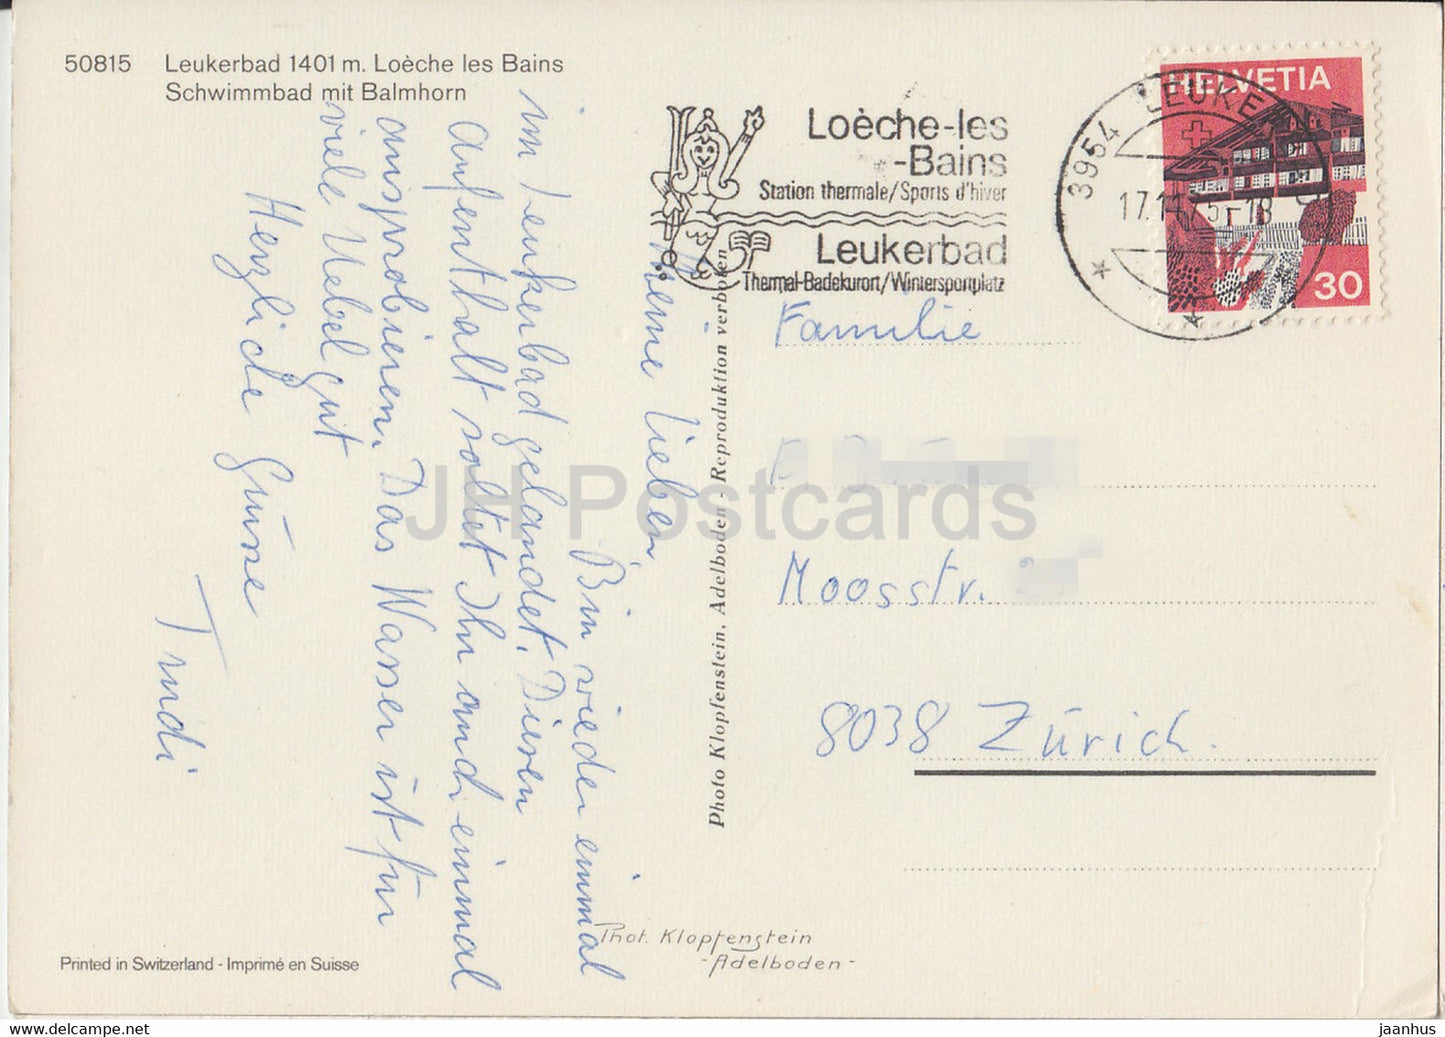 50815 Leukerbad 1401 m. Loèche les Bains
Schwimmbad mit Balmhorn
Loèche-les
-Bains
Station thermale/Sports d'hiver
Leukerbad
Thermal-Badekurort/Wintersportplatz
3954 LEUKE
17.1
HELVETIA
30
Meine lieben,
Bin wieder einmal
im Leukerbad gelandet. Diesen
Aufenthalt soltet Ihr auch einmal
ausprobieren. Das Wasser ist für
viele Uebel gut
Herzliche Grüsse
Trudi
Photo Klopfenstein, Adelboden - Reproduktion verboten
Familie
Moosstr.
8038 Zürich.
Phot. Klopfenstein
-Adelboden-
Printed in Switzerland - Imprimé en Suisse
JH Postcards
https://www.delcampe.net
jaanhus